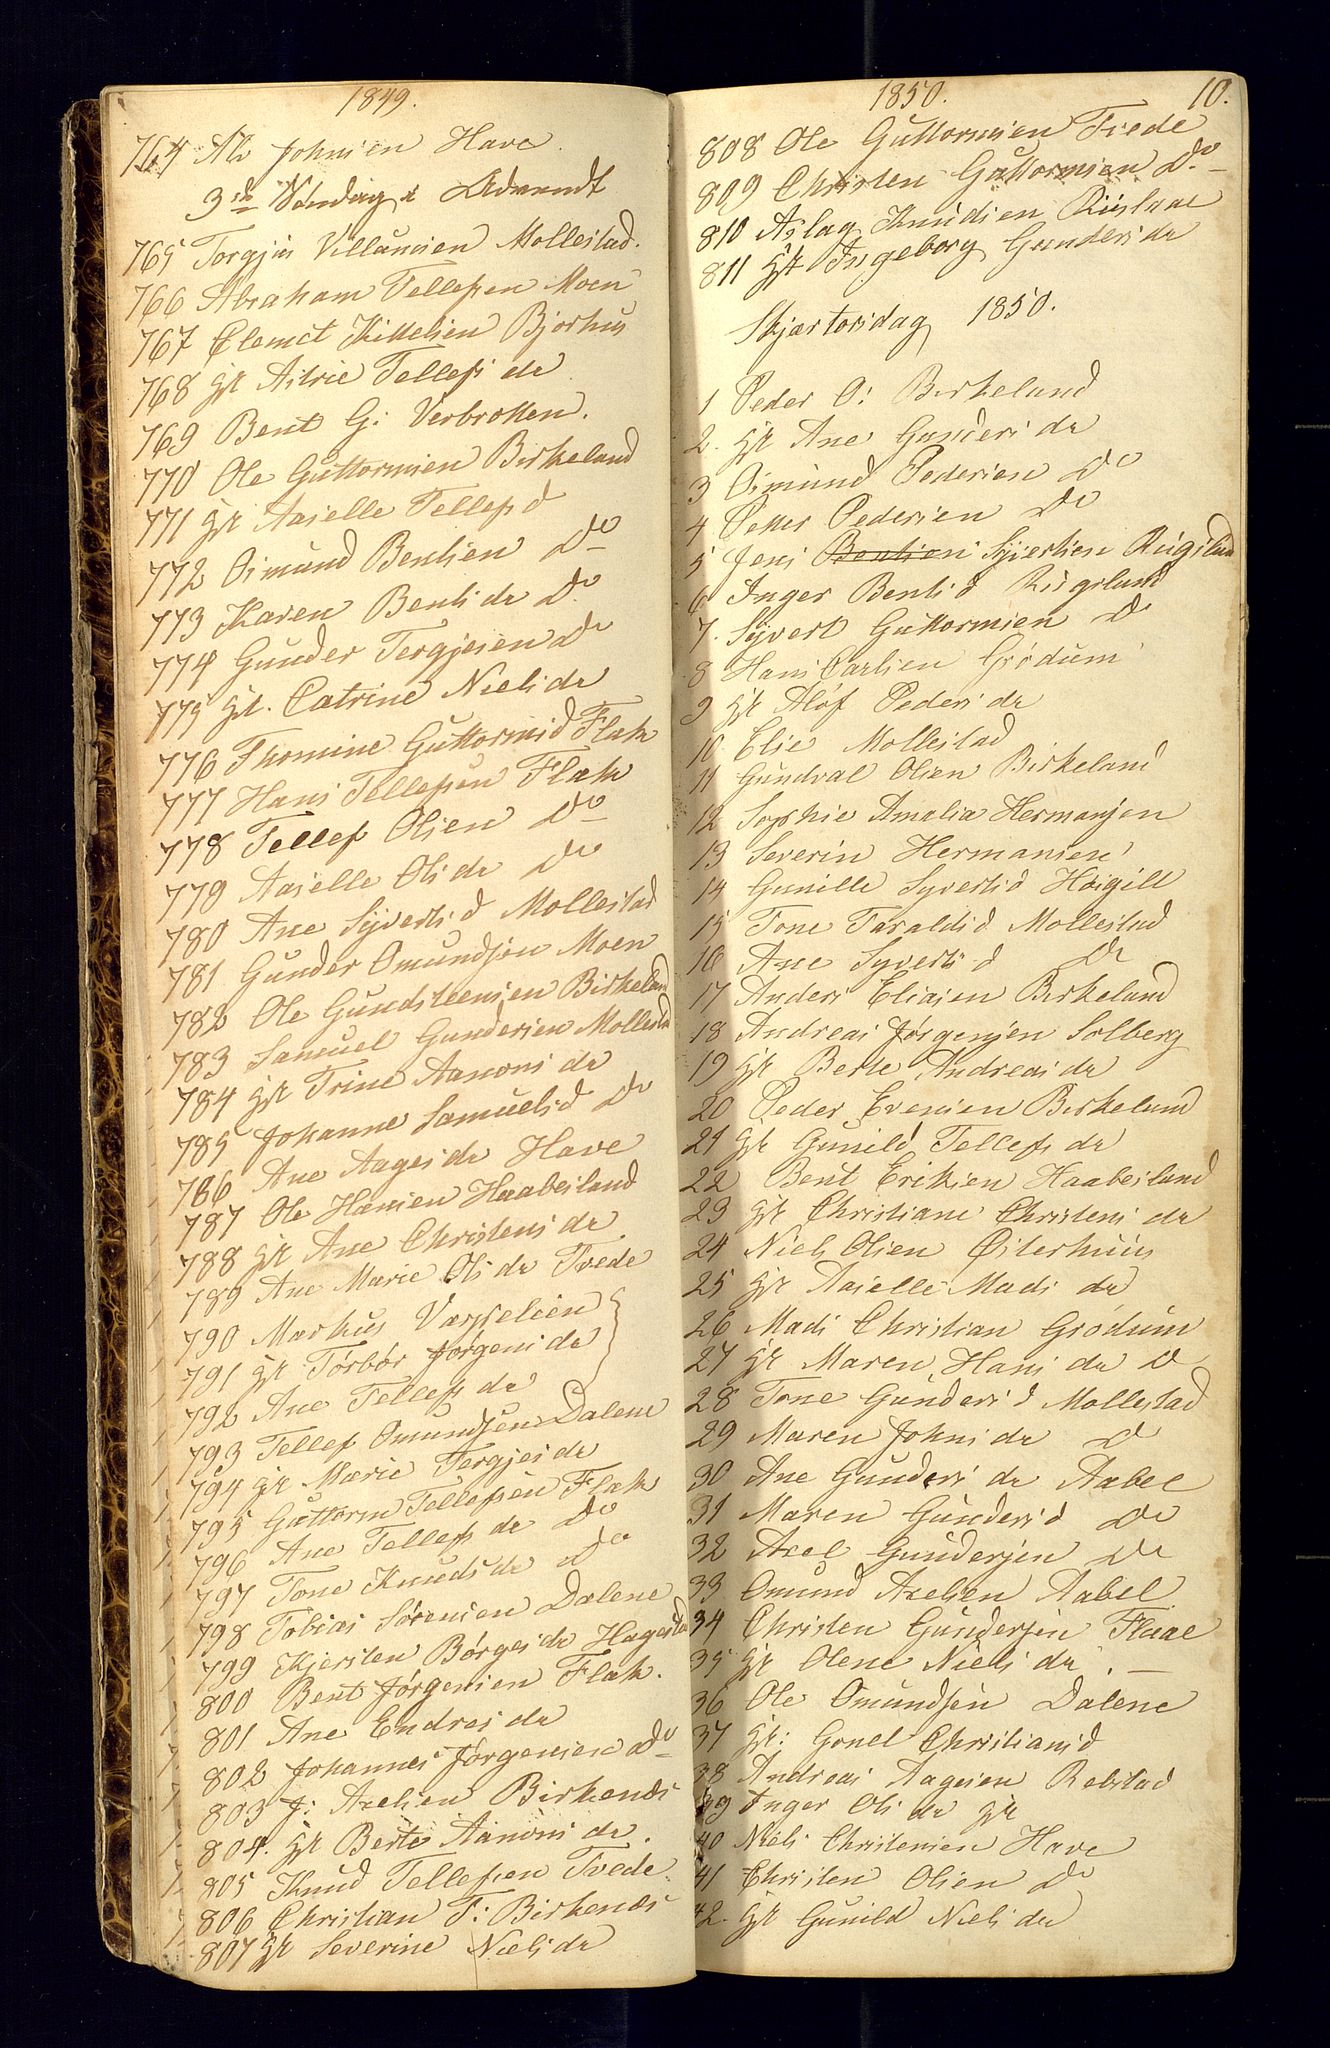 1849.
764 Als Johnsen Have
3de Søndag i Advendt
765 Torgjus Villumsen Mollestad.
766 Abraham Tellefsen Moen
767 Clemet Kittelsen Bjorhus
768 gst Astrie Tellefs dr
769 Bent G: Verbrotten.
770 Ole Guttormsen Birkeland
771 gst Aaselle Tellefs d
772 Osmund Bentsen Do
773 Karen Bents dr Do
774 Gunder Tergjesen Do
775 gst. Catrine Niels dr
776 Thomine Guttorms d Flak
777 Hans Tellefsen Flak
778 Tellef Olsen Do
779 Aaselle Ols dr Do
780 Ane Syverts d Mollestad
781 Gunder Omundsen Moen
782 Ole Gundsteensen Birkeland
783 Samuel Gundersen Mollestad
784 gst Trine Aanons dr
785 Johanne Samuels d Do
786 Ane Aages dr Have
787 Ole Hansen Haabesland
788 gst Ane Christens dr
789 Ane Marie Ols dr Tvede
790 Markus
791 gst Torbor Jørgens dr
792 Ane Tellefs dr
793 Tellef Omundsen Dalene
794 gst Marie Tergjes dr
795 Guttorm Tellefsen Flak
796 Ane Tellefs dr Do
797 Tone Knuds dr Do
798 Tobias Sørensen Dalene
799 Kjersten Børges dr Hagestad
800 Bent Jørgensen Flak.
801 Ane Endres dr
802 Johannes Jørgensen Do
803 J: Axelsen Birkenes
804. gst Berte Aanons dr.
805 Knud Tellefsen Tvede
806 Christian T: Birkenes
807 gst Severine Niels dr
1850. 10.
808 Ole Guttormsen Tvede
809 Christen Guttormsen Do
810 Aslag Knudsen Riislaae
811 gst Ingeborg Gunders dr
Skjærtorsdag 1850.
1 Peder O: Birkeland
2. gst Ane Gunders dr
3 Osmund Pedersen Do
4 Petter Pedersen Do
5 Jens Bentsen Syvertsen Rugslad
6 Inger Bents d Rugslund
7. Syvert Guttormsen Do
8 Hans Carlsen Grødum
9 gst Aløf Peders dr
10 Elie Mollestad
11 Gundval Olsen Birkeland
12 Sophie Amalia Hermansen
13 Severin Hermansen
14 Gunille Syverts d Høigilt
15 Tone Taralds d Mollestad
16 Ane Syverts d Do
17 Anders Eliasen Birkeland
18 Andreas Jørgensen Solberg
19 gst Berte Andreas dr
20 Peder Evensen Birkeland
21 gst Gunild Tellefs dr
22 Bent Eriksen Haabesland
23 gst Christiane Christens dr
24 Niels Olsen Østerhuus
25 gst Aaselle Mads dr
26 Mads Christian Grødum
27 gst Maren Hans dr Do
28 Tone Gunders d Mollestad
29 Maren Johns dr Do
30 Ane Gunders dr Aabel
31 Maren Gunders d Do
32 Axel Gundersen Do
33 Omund Axelsen Aabel
34 Christen Gundersen Flaae
35 gst Olene Niels dr. —
36 Ole Omundsen Dalene
37 gst: Gonel Christians d
38 Andreas Aagesen Rebstad
39 Inger Ols dr gst
40 Niels Christensen Have
41 Christen Olsen Do
42. gst Gunild Niels dr